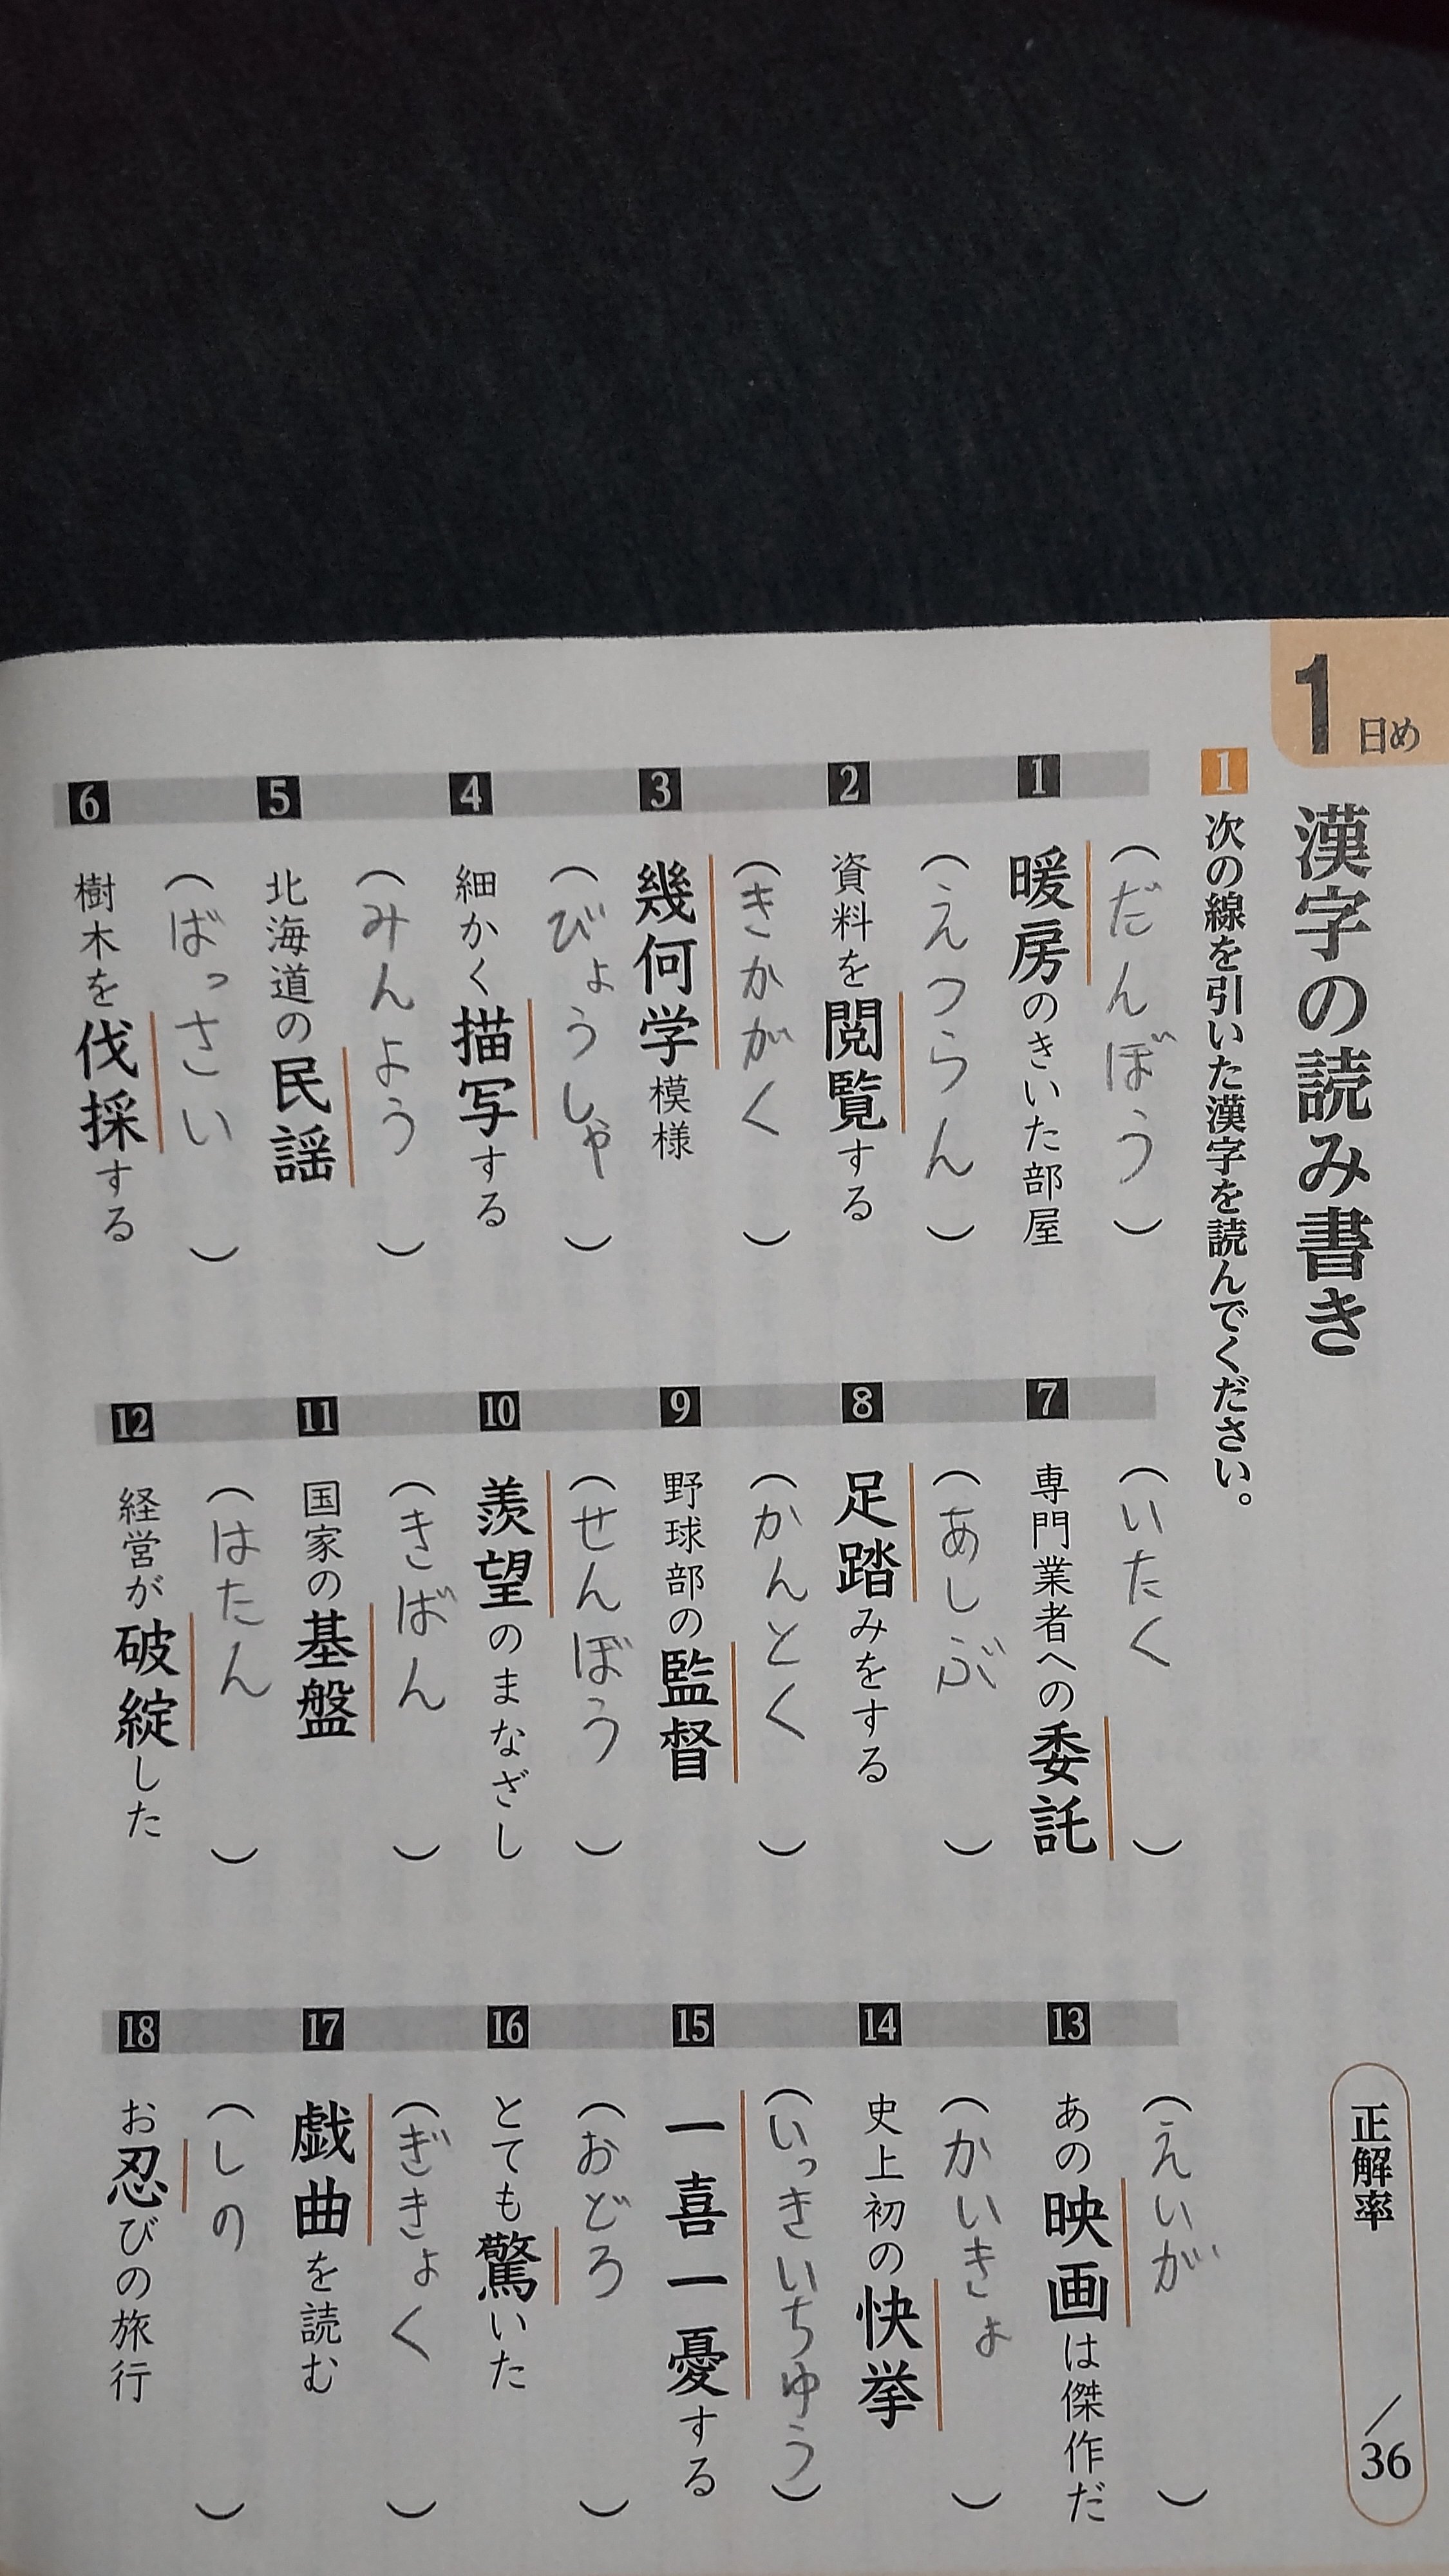 1日め
漢字の読み書き
正解率 /36
1 次の線を引いた漢字を読んでください。
1 暖房のきいた部屋
(だんぼう)
2 資料を閲覧する
(えつらん)
3 幾何学模様
(きかがく)
4 細かく描写する
(びょうしゃ)
5 北海道の民謡
(みんよう)
6 樹木を伐採する
(ばっさい)
7 専門業者への委託
(いたく)
8 足踏みをする
(あしぶ)
9 野球部の監督
(かんとく)
10 羨望のまなざし
(せんぼう)
11 国家の基盤
(きばん)
12 経営が破綻した
(はたん)
13 あの映画は傑作だ
(えいが)
14 史上初の快挙
(かいきょ)
15 一喜一憂する
(いっきいちゅう)
16 とても驚いた
(おどろ)
17 戯曲を読む
(ぎきょく)
18 お忍びの旅行
(しの)